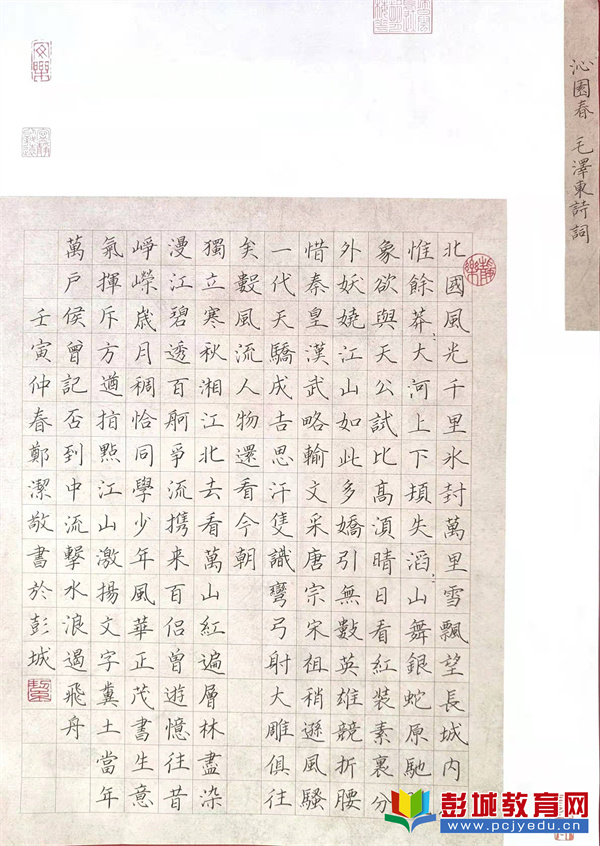 沁園春 毛澤東詩詞
北國風光千里氷封萬里雪飄望長城内
惟餘莽〻大河上下頓失滔〻山舞銀蛇原馳
象欲與天公試比髙湏晴日看紅裝素裹分
外妖嬈江山如此多嬌引無數英雄競折腰
惜秦皇漢武略輸文采唐宗宋祖稍遜風騷
一代天驕成吉思汗隻識彎弓射大雕俱往
矣數風流人物還看今朝
獨立寒秋湘江北去看萬山紅遍層林盡染
漫江碧透百舸爭流携来百侣曾遊憶往昔
崢嶸歳月稠恰同學少年風華正茂書生意
氣揮斥方遒指點江山激揚文字糞土當年
萬戶侯曾記否到中流擊水浪遏飛舟
壬寅仲春鄭潔敬書於彭城
彭城教育网
www.pcjyedu.cn